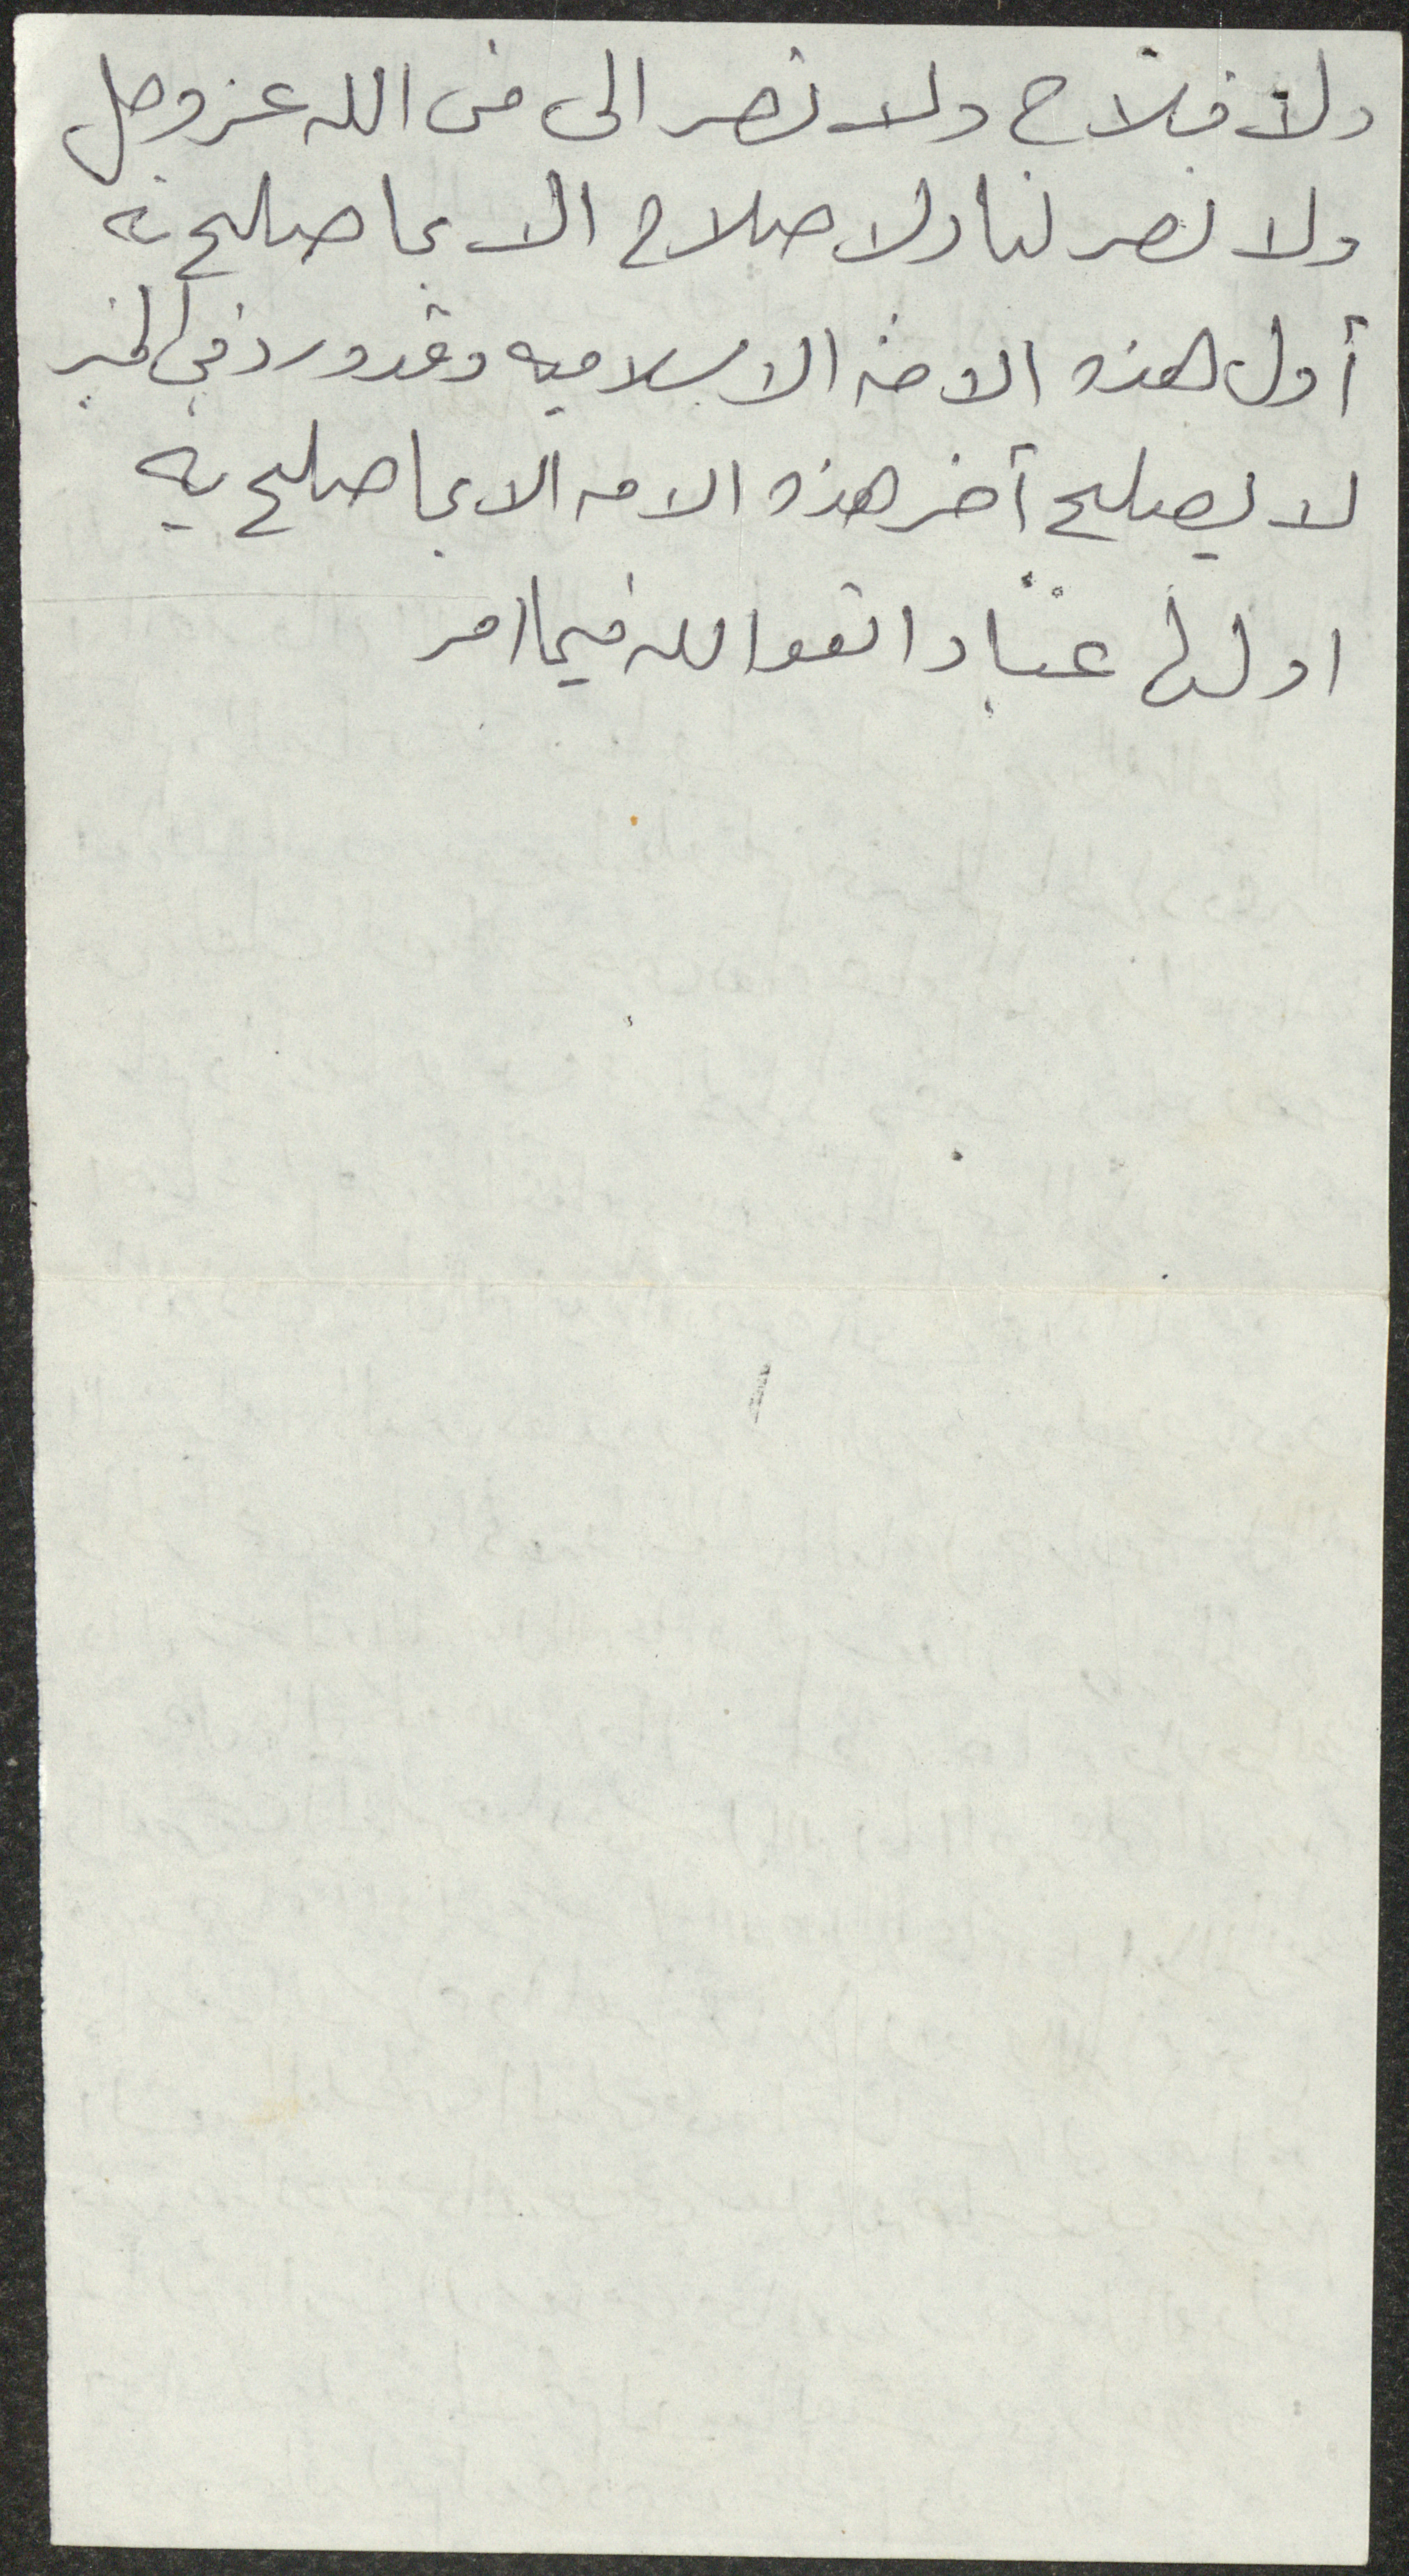 ولا فلاح ولا نصر الى من الله عز وجل
ولا نصر لنا ولا صلاح الا بما صلح به
أول هذه الامة الاسلاميه وقد ورد في الخبر
لا يصلح آخر هذه الامه الا بما صلح به
اولها عباد اتقوا الله فيما امر